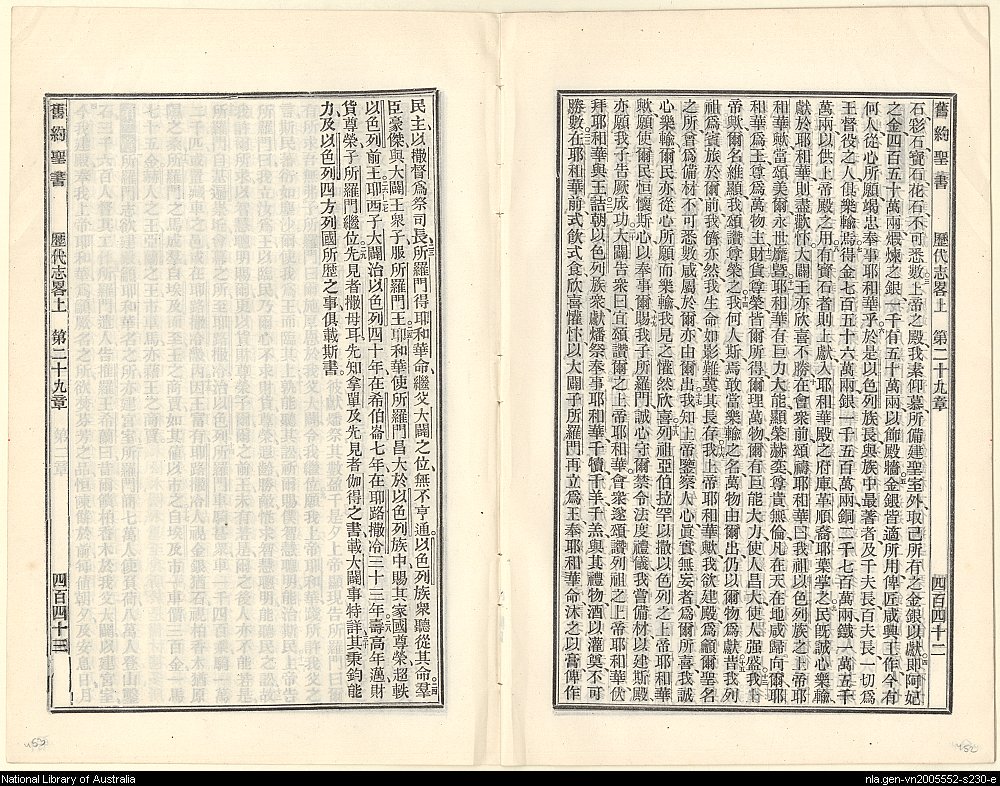 舊約聖書 歷代志畧上 第二十九章 四百四十二
石彩石寶石花石不可悉數上帝之殿我素仰慕所備建聖室外取己所有之金銀以獻卽阿妃
之金四百五十萬兩煆煉之銀一千有五十萬兩以飾殿牆金銀皆適所用俾匠咸興工作今有
何人從心所願竭忠奉事耶和華乎於是以色列族長與族中最著者及千夫長百夫長一切爲
王督役之人俱樂輸焉得金七百五十六萬兩銀一千五百萬兩銅二千七百萬兩鐵一萬五千
萬兩以供上帝殿之用有寶石者則上獻入耶和華殿之府庫革順裔耶葉掌之民旣誠心樂輸
獻於耶和華則盡歡忭大闢王亦欣喜不勝在會衆前頌禱耶和華曰我祖以色列族之上帝耶
和華歟當頌美爾永世靡曁耶和華有巨力大能顯榮赫奕尊貴無倫凡在天在地咸歸向爾耶
和華爲主尊爲萬物主財貨尊榮皆爾所得爾理萬物爾有巨能大力使人昌大使人强盛我上
帝歟爾名維顯我頌讚尊榮之我何人斯焉敢當樂輸之名萬物由爾出仍以爾物爲獻昔我列
祖爲賓旅於爾前我儕亦然我生命如影難冀其長存我上帝耶和華歟我欲建殿爲顧爾聖名
之所會爲備材不可悉數咸屬於爾亦由爾出我知上帝鑒察人心眞實無妄者爲爾所喜我誠
心樂輸爾民亦從心所願而樂輸我見之懽然欣喜列祖亞伯拉罕以撒以色列之上帝耶和華
歟願使爾民恒懷斯心以奉事爾賜我子所羅門誠心守爾禁令法度禮儀我嘗備材以建斯殿
亦願我子告厥成功大闢告衆曰宜頌讚爾之上帝耶和華會衆遂頌讚列祖之上帝耶和華伏
拜耶和華與王詰朝以色列族衆獻燔祭奉事耶和華千犢千羊千羔與其禮物酒以灌奠不可
勝數在耶和華前式飲式食欣喜懽忭以大闢子所羅門再立爲王奉耶和華命沐之以膏俾作
民主以撒督爲祭司長所羅門得耶和華命繼父大闢之位無不亨通以色列族衆聽從其命羣
臣豪傑與大闢王衆子服所羅門王耶和華使所羅門昌大於以色列族中賜其家國尊榮超軼
以色列前王耶西子大闢治以色列四十年在希伯崙七年在耶路撒冷三十三年壽高年邁財
貨尊榮子所羅門繼位先見者撒母耳先知拿單及先見者伽得之書載大闢事特詳其秉鈞能
力及以色列四方列國所歷之事俱載斯書
舊約聖書 歷代志畧上 第二十九章 四百四十三
453
452
National Library of Australia
nla.gen-vn2005552-s230-e